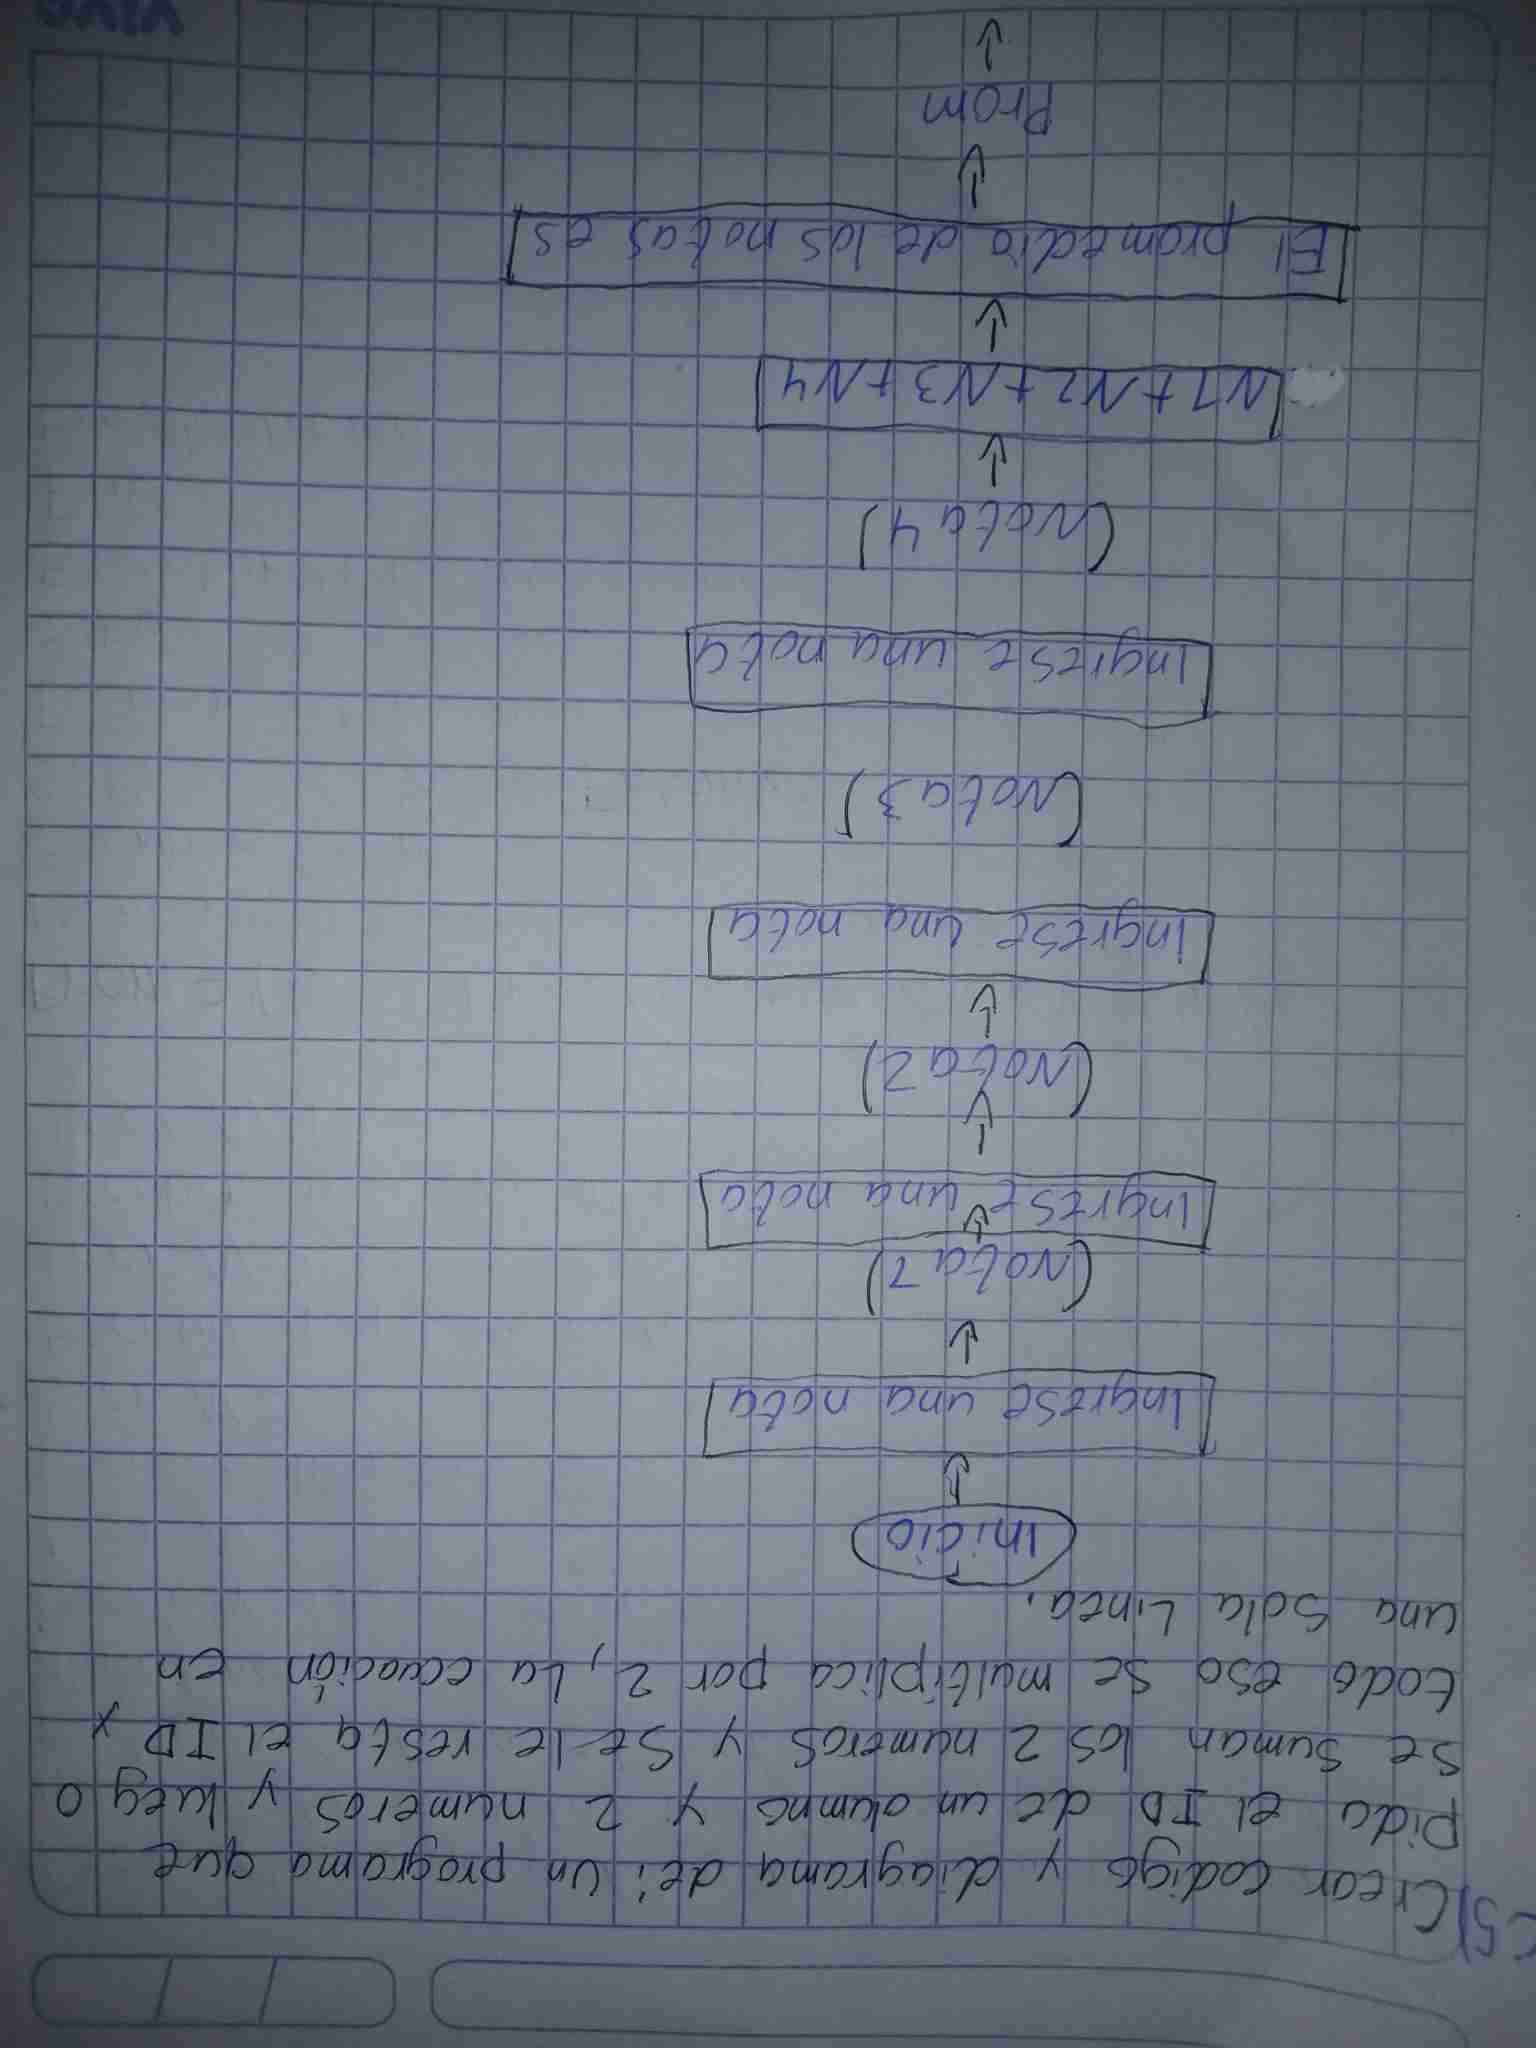 5) Crear codigo y diagrama de: un programa que
pida el ID de un alumno y 2 numeros y luego
se suman los 2 numeros y se le resta el ID y
todo eso se multiplica por 2, La ecuación en
una sola Linea.
Inicio
Ingrese una nota
(Nota 1)
Ingrese una nota
(Nota 2)
Ingrese una nota
(Nota 3)
Ingrese una nota
(Nota 4)
N1+N2+N3+N4
El promedio de las notas es
Prom